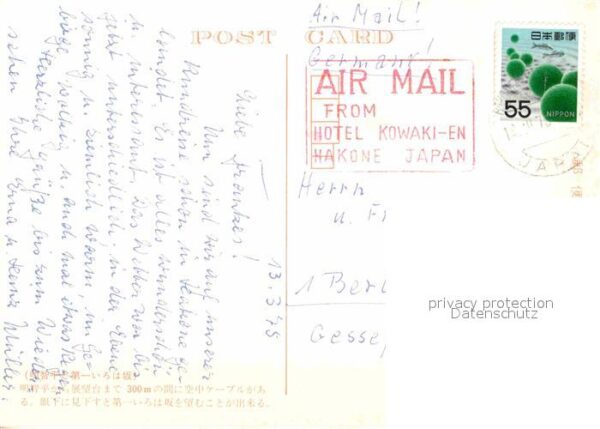 POST CARD
Air Mail!
Germany!
AIR MAIL
FROM
HOTEL KOWAKI-EN
HAKONE JAPAN
日本郵便
55
NIPPON
JAPAN
Herrn
u. Fr
1 Berl
Gesse
privacy protection
Datenschutz
13.3.75
Liebe
Nun sind wir auf unserer
Rundreise schon in Hakone ge-
landet. Es ist alles wunderschön
u. interessant. Das Wetter war bis
jetzt unterschiedlich, in der Ebene
sonnig u. ziemlich warm, im Ge-
birge Wolken u. auch mal etwas Regen.
Herzliche Grüße bis zum Wieder-
sehen Ihre u. Müller.
第一いろは坂)
明智平から展望台まで 300mの間に空中ケーブルがあ
る。眼下に見下すと第一いろは坂を望むことが出来る。